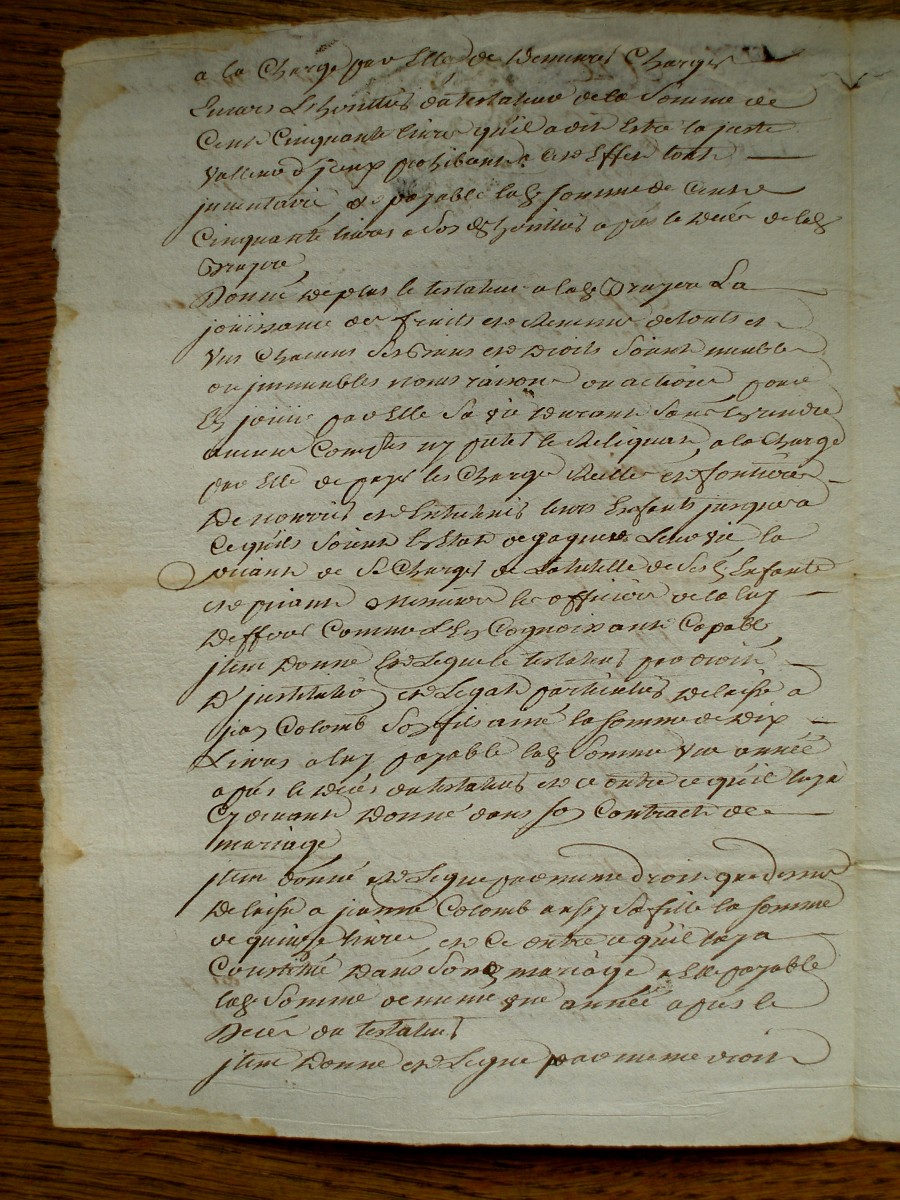 a la Charge par Elle de demeurer Chargée
Envers Les heritiers du testateur de la Somme de
Cent Cinquante livres qu'il a dit Estre la juste
Valleur d'jceux prohibant de ces Effets tout
jnventaire, et payable lad. somme de Cent
Cinquante livres a Sesd. heritiers apres le deces de lad.
Drayere
Donne de plus le testateur a lad. Drayere La
joüissance des fruits et Revenus de touts et
Vns Chacuns Ses Biens et Droits Soient meubles
ou jmmeubles noms raisons ou actions pour
En joüir par Elle Sa vie durant Sans En rendre
aucun Compte ny preter le Reliquat, a la Charge
par Elle de payer les Charges Reelles et foncieres
De nourrir et Entretenir leurs Enfants jusques a
Ce qu'ils Soient En Etat de gagner Leur vie la
priant de Se Charger de La tutelle de Sesd. Enfants
et priant Messieurs les officiers de la luy
Defferer Comme L'En Cognoissant Capable,
jtem Donne et Legue le testateur par droit
D'jnstitution et Legat particulier delaisse a
Colomb Son fils ainé la somme de Dix
Livres a luy payable lad. Somme Vne année
apres le Deces du testateur et ce outre ce qu'il luy a
Cy devant Donné dans son Contract de
mariage
jtem donne et Legue par meme droit que dessus
Delaisse a jeanne Colomb aussy Sa fille la somme
de quinze livres, et Ce outre ce qu'il luy a
Constitué Dans Son mariage a Elle payable
lad. Somme de meme Vne année apres le
Deces du testateur
jtem Donne et Legue par meme droit